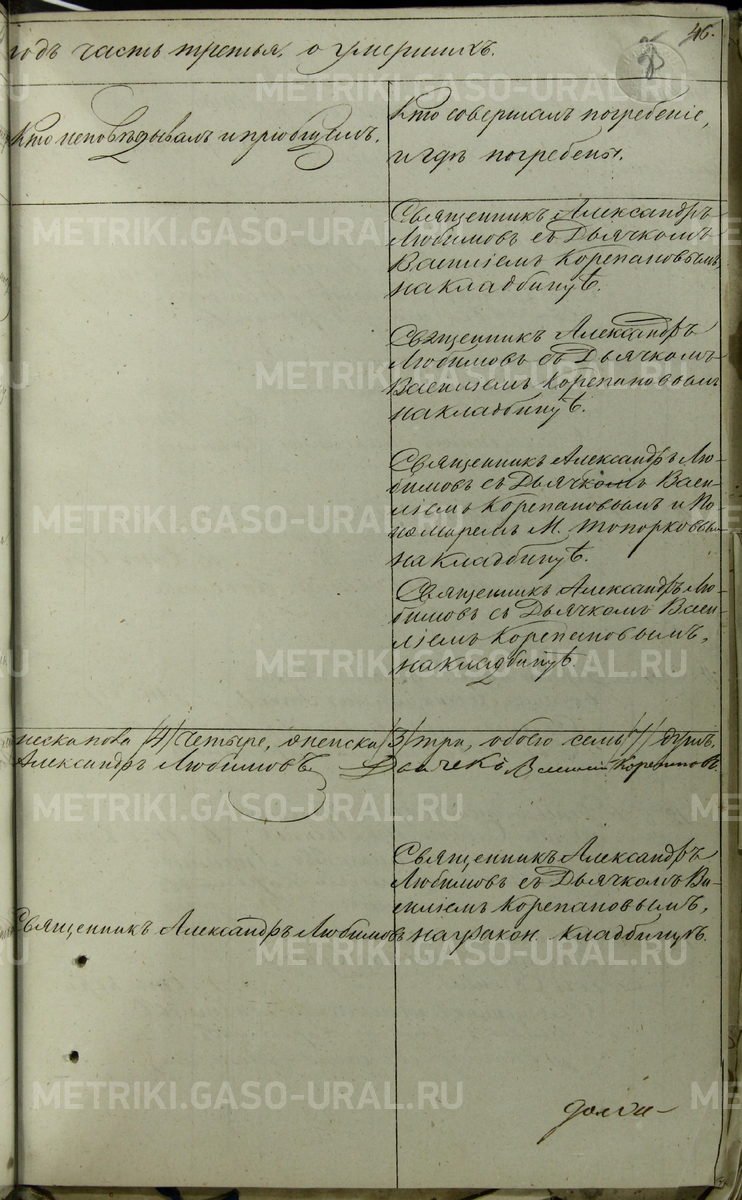 46.
годъ часть третья, о умершихъ.
Кто исповѣдывалъ и пріобщалъ.
Кто совершалъ погребеніе,
и гдѣ погребены.
Священникъ Александръ
Любимовъ съ Дьячкомъ
Василіемъ Корепановымъ,
на кладбищѣ.
Священникъ Александръ
Любимовъ съ Дьячкомъ
Василіемъ Корепановымъ
на кладбищѣ.
Священникъ Александръ Лю-
бимовъ съ Дьячкомъ Васи-
ліемъ Корепановымъ и По-
номаремъ М. Топорковым
на кладбищѣ.
Священникъ Александръ Лю-
бимовъ съ Дьячкомъ Васи-
ліемъ Корепановымъ,
на кладбищѣ
ческа пола /4/ Четыре, женска /3/ три, обоего семь /7/ душъ.
Александръ Любимовъ. Дьячекъ Василій Корепановъ.
Священникъ Александръ
Любимовъ съ Дьячкомъ Ва-
силіемъ Корепановымъ,
Священникъ Александръ Любимовъ на закон. кладбищѣ.
METRIKI.GASO-URAL.RU